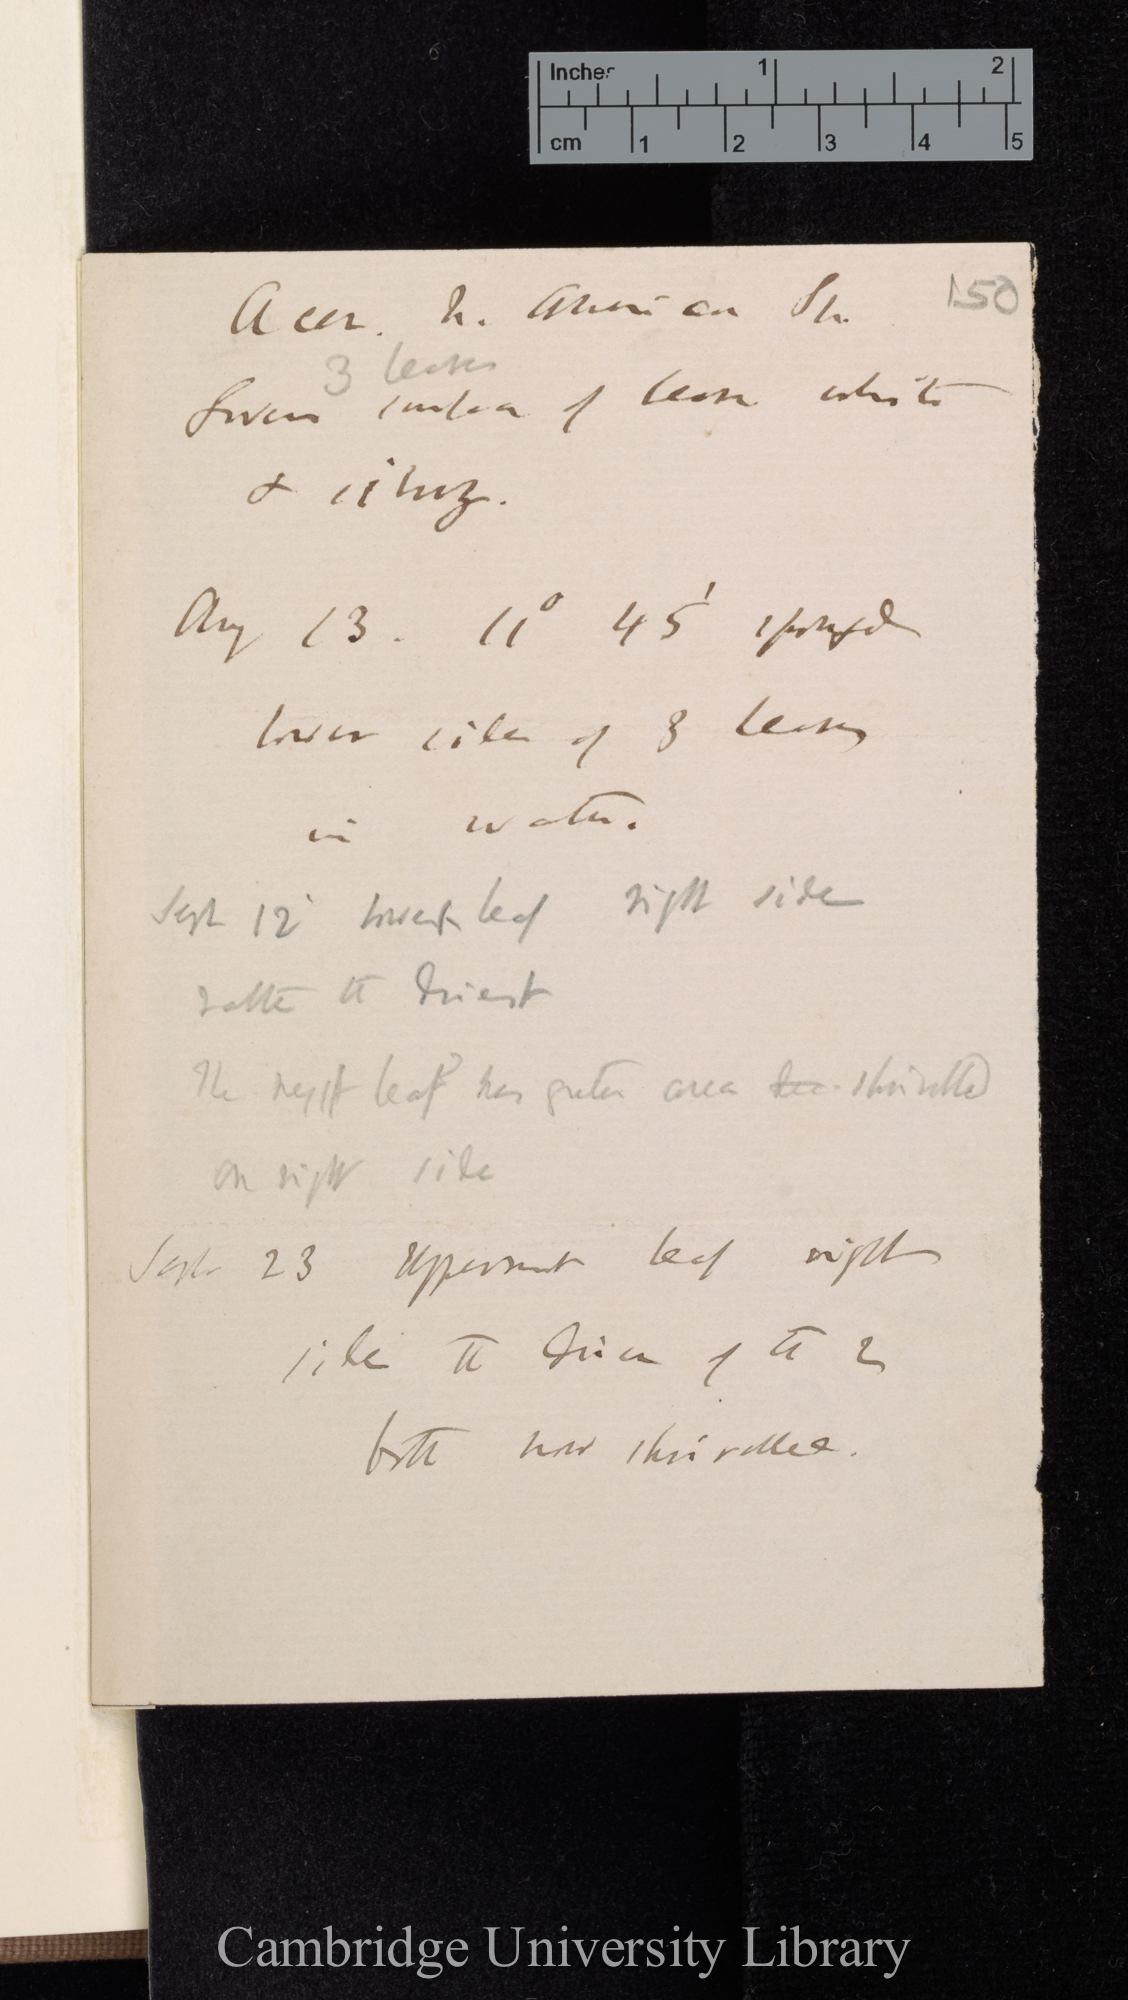 Inches 1 2
cm 1 2 3 4 5
150
Acer. N. American Sp.
3 leaves
Lower surface of leaves white
& silvery.
Aug 13. 11° 45' sponged
lower sides of 3 leaves
in water.
Sept 12' lowest leaf right side
rather the driest
The next leaf has greater area shrivelled
on right side
Sept 23 Uppermost leaf right
side the drier of the 2
both now shrivelled.
Cambridge University Library